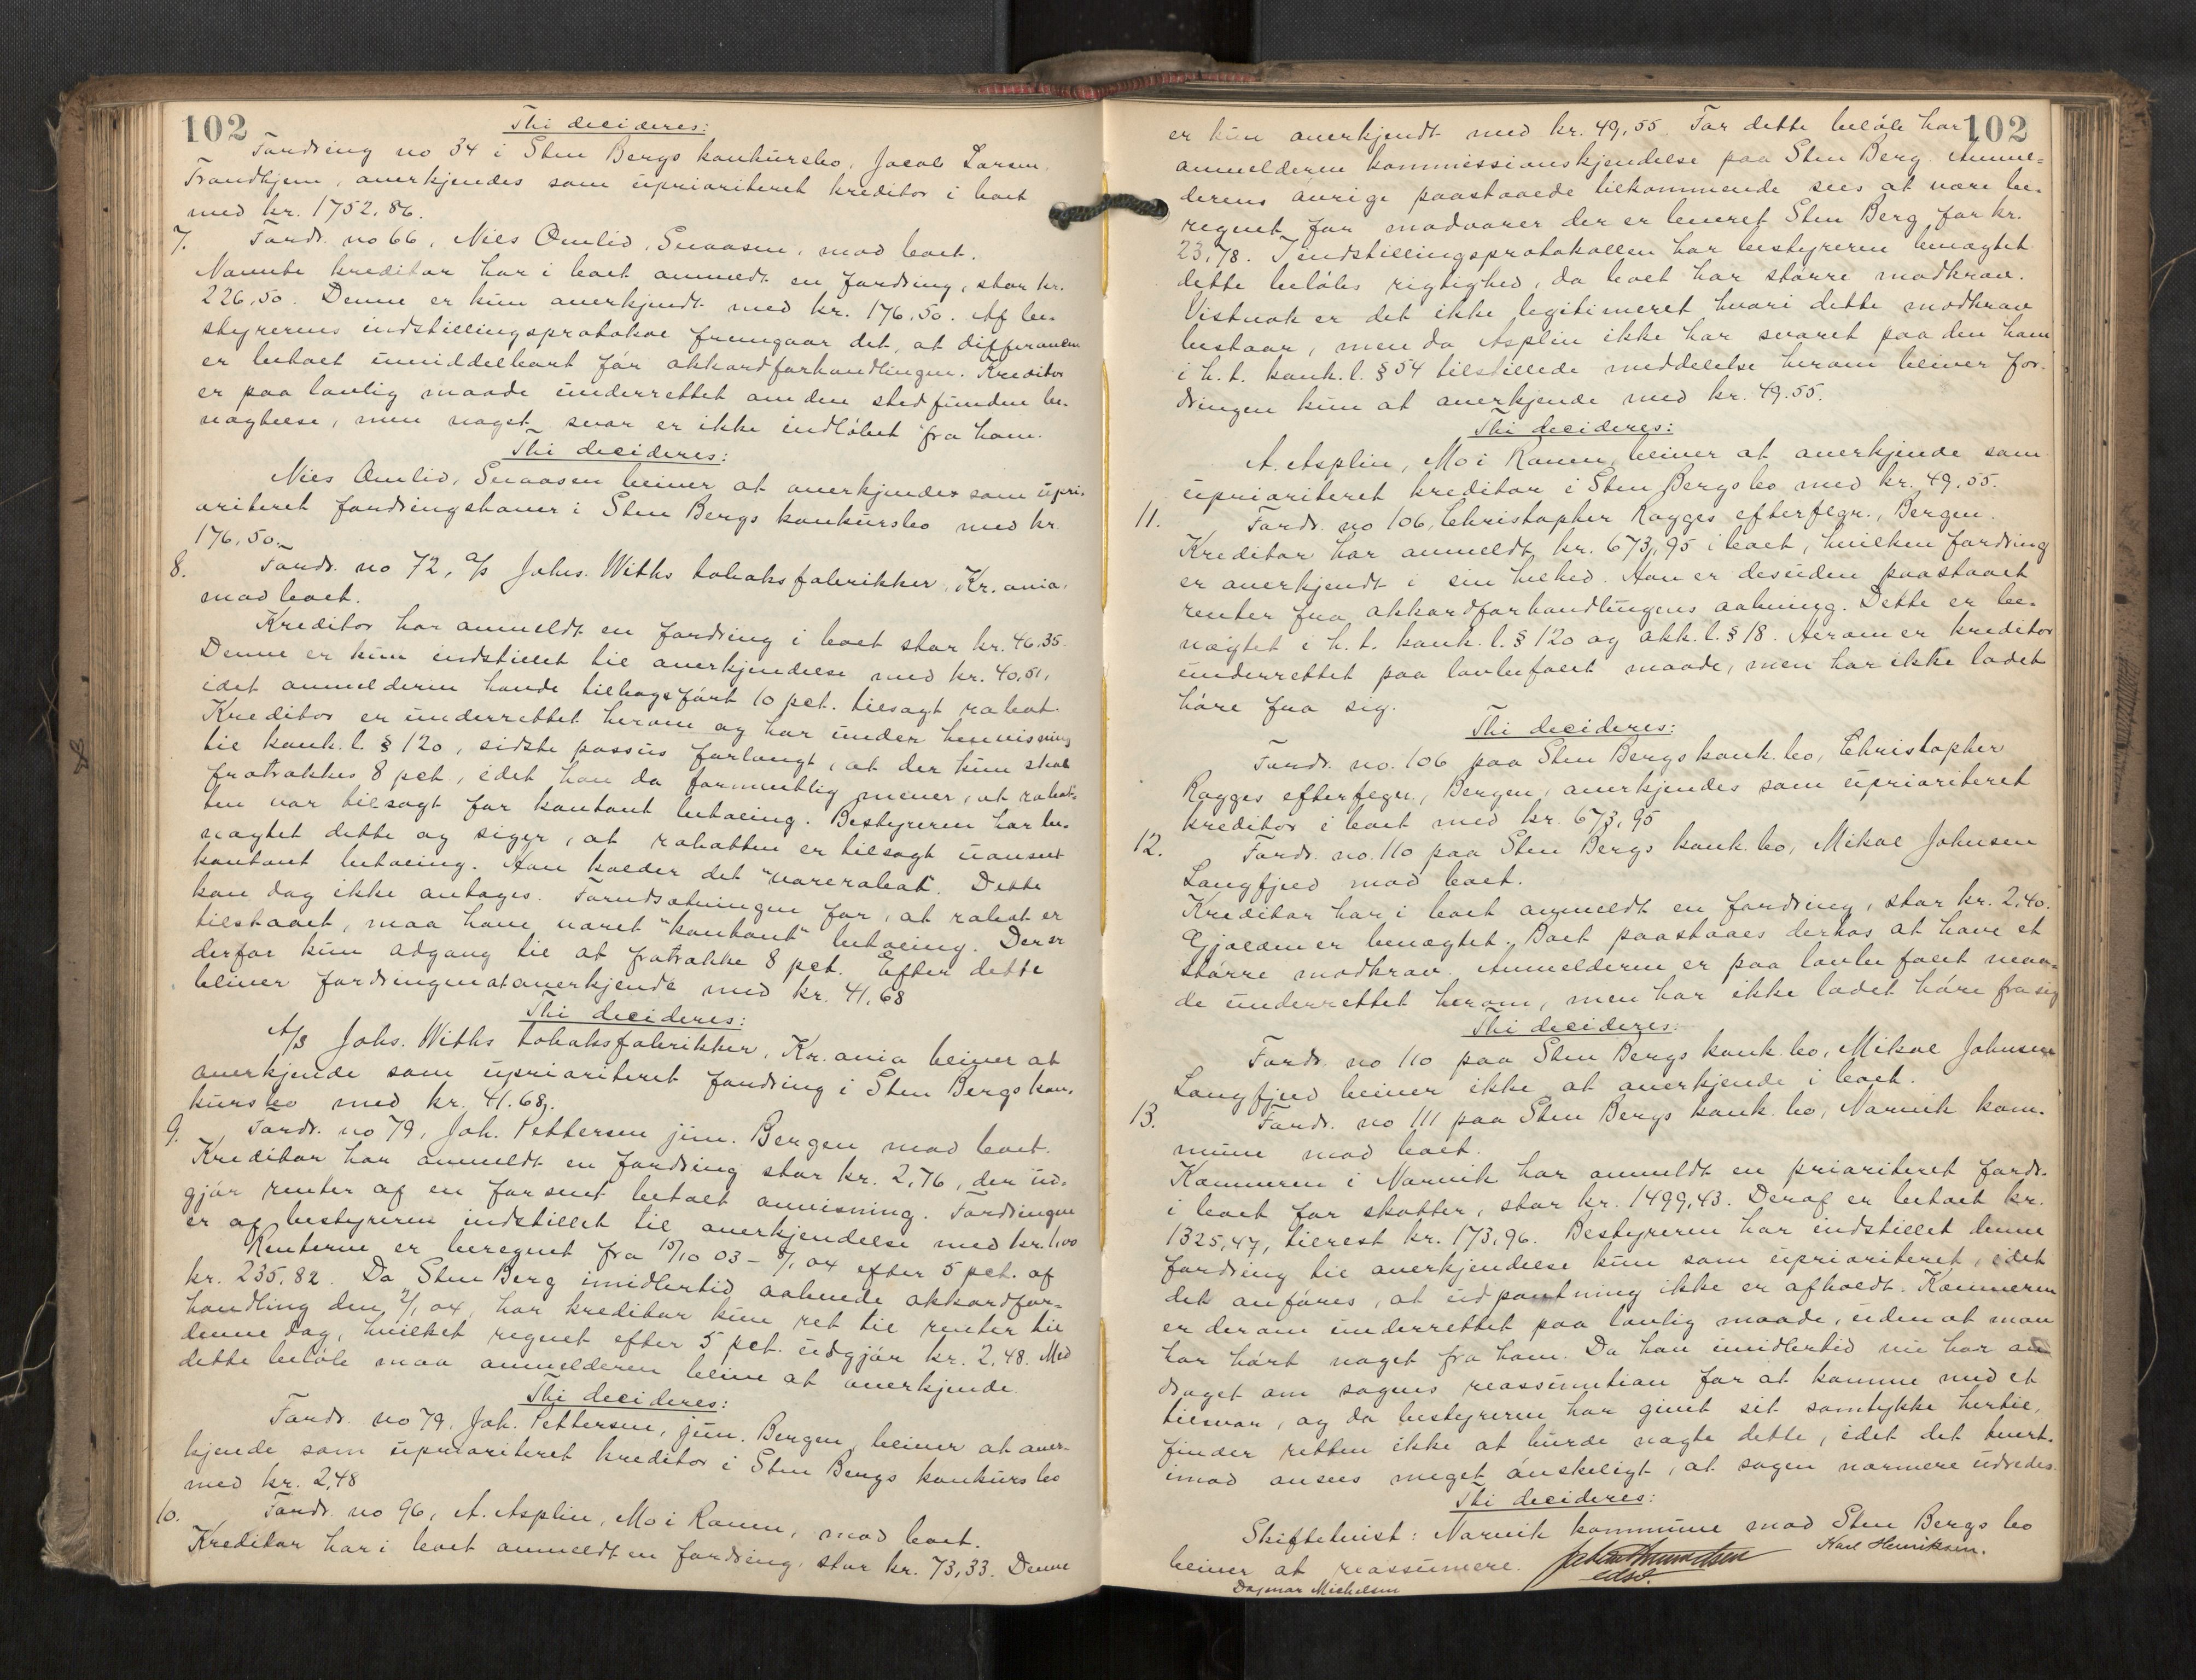 102
Thi decideres:
Fordring no 34 i Sten Bergs konkursbo, Jacob Larsen,
Trondhjem, anerkjendes som uprioriteret kreditor i boet
med kr. 1752.86.
7. Fordr. no 66, Nils Omlid, Snaasen, mod boet.
Nævnte kreditor har i boet anmeldt en fordring, stor kr.
226,50. Denne er kun anerkjendt med kr. 176,50. Af be-
styrerens indstillingsprotokol fremgaar det, at differancen
er betalt umiddelbart før akkordforhandlingen. Kreditor
er paa lovlig maade underrettet om den stedfundne be-
nægtelse, men noget svar er ikke indløbet fra ham.
Thi decideres:
Nils Omlid, Snaasen bliver at anerkjendes som upri-
oriteret fordringshaver i Sten Bergs konkursbo med kr.
176,50.
8. Fordr. no 72, A/S Johs. Withs tobaksfabrikker, Kr.ania,
mod boet.
Kreditor har anmeldt en fordring i boet stor kr. 46.35.
Denne er kun indstillet til anerkjendelse med kr. 40,51,
idet anmelderen havde tilbageført 10 pct. tilsagt rabat.
Kreditor er underrettet herom og har under henvisning
til konk. l. § 120, sidste passus forlangt, at der kun skal
fratrækkes 8 pct., idet han da formentlig mener, at rabat-
ten var tilsagt for kontant betaling. Bestyreren har be-
nægtet dette og siger, at rabatten er tilsagt uanset
kontant betaling. Han kalder det "varerabat". Dette
kan dog ikke antages. Forudsætningen for, at rabat er
tilstaaet, maa have været "kontant" betaling. Der er
derfor kun adgang til at fratrække 8 pct. Efter dette
bliver fordringen at anerkjende med kr. 41,68
Thi decideres:
A/S Johs. Withs tobaksfabrikker, Kr.ania bliver at
anerkjende som uprioriteret fordring i Sten Bergs kon-
kursbo med kr. 41.68.
9. Fordr. no 79, Joh. Pettersen jun. Bergen mod boet.
Kreditor har anmeldt en fordring stor kr. 2,76, der ud-
gjør renter af en for sent betalt anvisning. Fordringen
er af bestyreren indstillet til anerkjendelse med kr. 1,00
Renterne er beregnet fra 15/10 03 – 9/1 04 efter 5 pct. af
kr. 235,82. Da Sten Berg imidlertid aabnede akkordfor-
handling den 2/1 04, har kreditor kun ret til renter til
denne dag, hvilket regnet efter 5 pct. udgjør kr. 2,48. Med
dette beløb maa anmelderen blive at anerkjende.
Thi decideres:
Fordr. no 79, Joh. Pettersen, jun. Bergen bliver at aner-
kjende som uprioriteret kreditor i Sten Bergs konkursbo
med kr. 2,48
10. Fordr. no 96, A. Asplin, Mo i Ranen, mod boet.
Kreditor har i boet anmeldt en fordring, stor kr. 73,33. Denne
102
er kun anerkjendt med kr. 49,55. For dette beløb har
anmelderen kommissionskjendelse paa Sten Berg. Anmel-
derens øvrige paastaaede tilkommende sees at være be-
regnet for modvarer der er leveret Sten Berg for kr.
23,78. I indstillingsprotokollen har bestyreren benægtet
dette beløbs rigtighed, da boet har større modkrav.
Vistnok er det ikke legitimeret hvori dette modkrav
bestaar, men da Asplin ikke har svaret paa den ham
i h. t. konk. l. § 54 tilstillede meddelelse herom bliver for-
dringen kun at anerkjende med kr. 49.55.
Thi decideres:
A. Asplin, Mo i Ranen, bliver at anerkjende som
uprioriteret kreditor i Sten Bergs bo med kr. 49,55.
11. Fordr. no 106, Christopher Rogges efterfegr., Bergen.
Kreditor har anmeldt kr. 673,95 i boet, hvilken fordring
er anerkjendt i sin helhed. Han er desuden paastaaet
renter fra akkordforhandlingens aabning. Dette er be-
nægtet i h. t. konk. l. § 120 og akk. l. § 18. Herom er kreditor
underrettet paa lovbefalet maade, men har ikke ladet
høre fra sig.
Thi decideres:
Fordr. no. 106 paa Sten Bergs konk. bo, Christopher
Rogges efterfegr., Bergen, anerkjendes som uprioriteret
kreditor i boet med kr. 673,95
12. Fordr. no. 110 paa Sten Bergs konk. bo, Mikal Johnsen
Langfjed mod boet.
Kreditor har i boet anmeldt en fordring, stor kr. 2,40.
Gjælden er benægtet. Boet paastaaes derhos at have et
større modkrav. Anmelderen er paa lovbefalet maa-
de underrettet herom, men har ikke ladet høre fra sig
Thi decideres:
Fordr. no 110 paa Sten Bergs konk. bo, Mikal Johnsen
Langfjed bliver ikke at anerkjende i boet.
13. Fordr. no 111 paa Sten Bergs konk. bo, Narvik kom-
mune mod boet.
Kæmneren i Narvik har anmeldt en prioriteret fordr.
i boet for skatter, stor kr. 1499,43. Deraf er betalt kr.
1325,47, tilrest kr. 173,96. Bestyreren har indstillet denne
fordring til anerkjendelse kun som uprioriteret, idet
det anføres, at udpantning ikke er afholdt. Kæmneren
er derom underrettet paa lovlig maade, uden at man
har hørt noget fra ham. Da han imidlertid nu har an-
draget om sagens reassumtion for at komme med et
tilsvar, og da bestyreren har givet sit samtykke hertil,
finder retten ikke at burde nægte dette, idet det tvert-
imod ansees meget ønskeligt, at sagen nærmere udredes.
Thi decideres:
Skiftetvist: Narvik kommune mod Sten Bergs bo
bliver at reassumere.
Karl Henriksen.
edsv.
Dagmar Michelsen